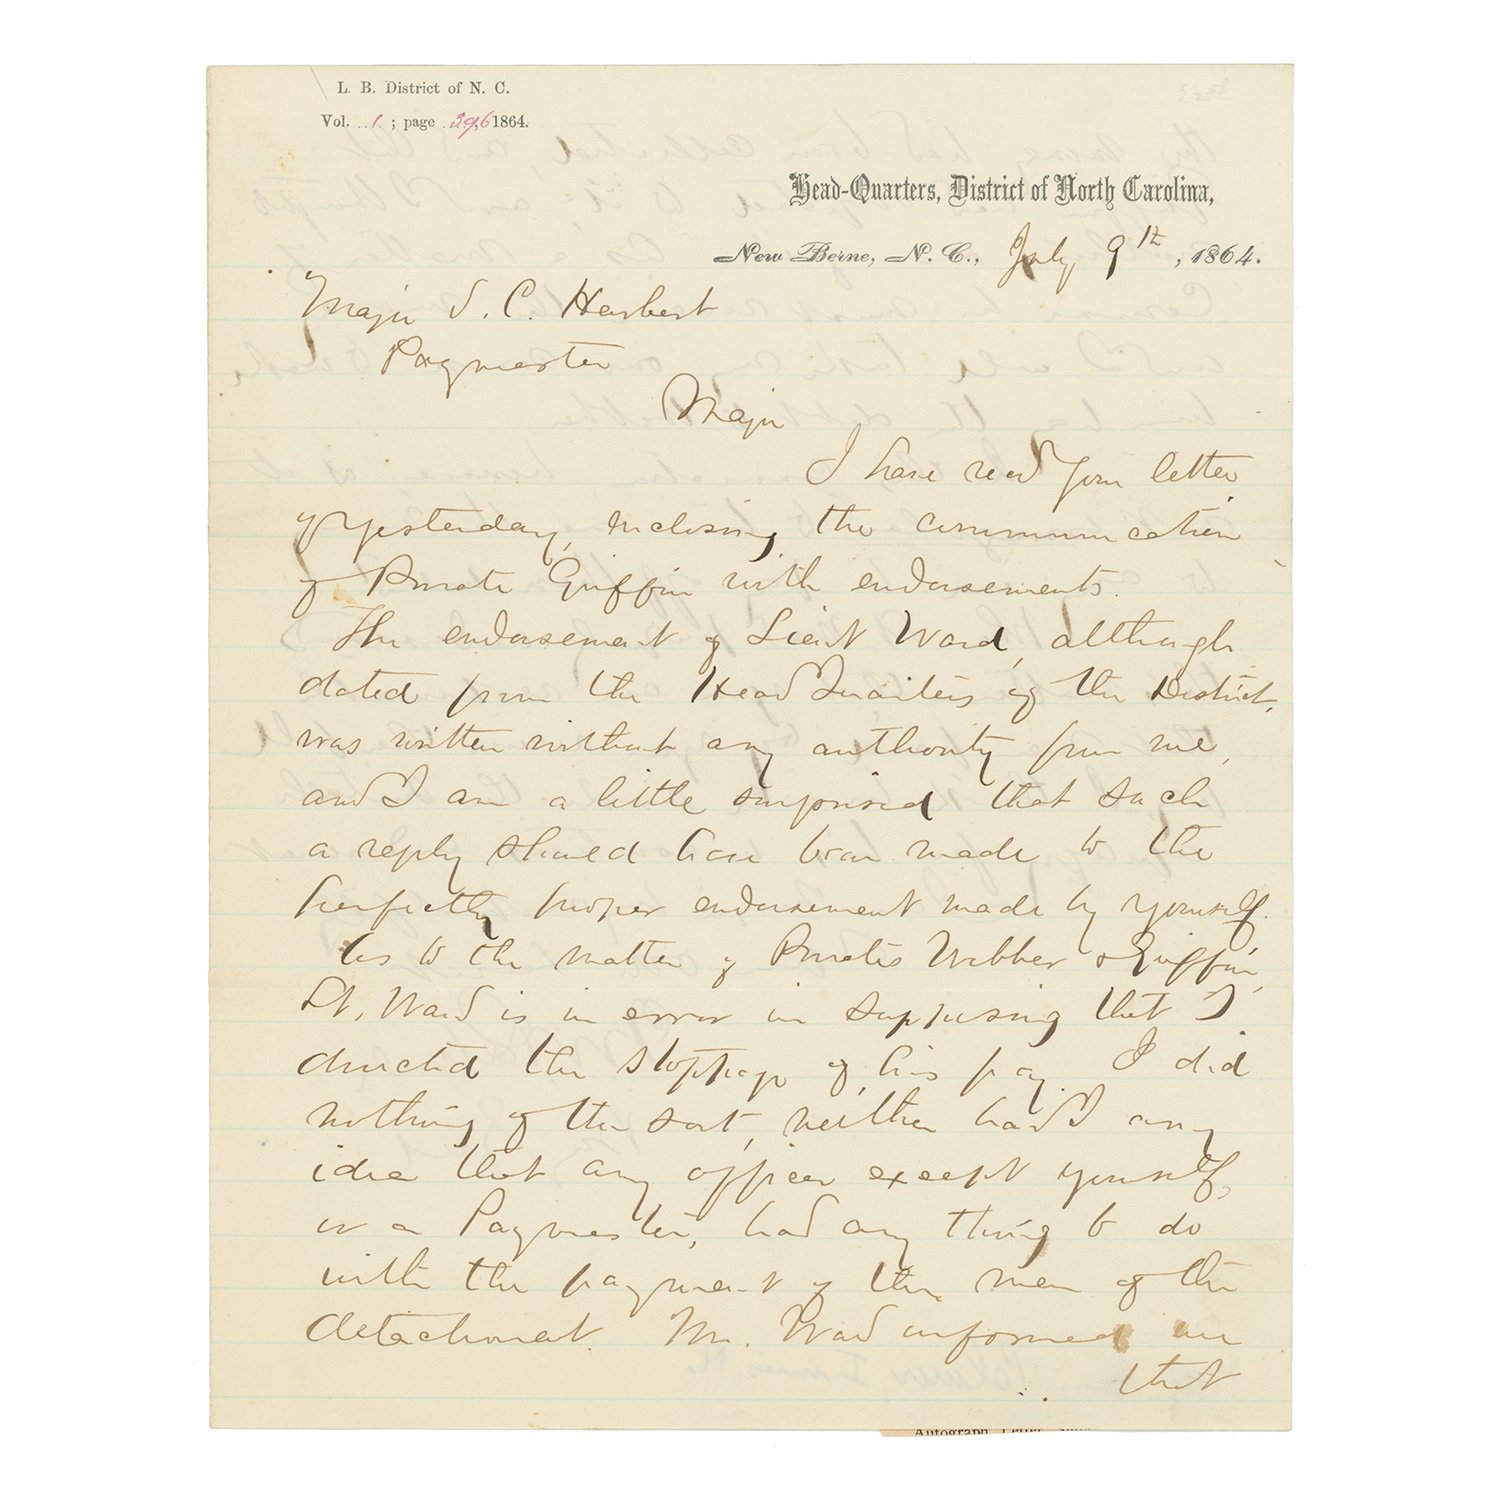 L. B. District of N. C.
Vol. 1. ; page 396 1864.
Head-Quarters, District of North Carolina,
New Berne, N. C., July 9th, 1864.
Major S. C. Harbert
Paymaster
Major
I have read your letter
of yesterday, inclosing the communication
of Private Griffin with endorsements.
The endorsement of Lieut Ward, although
dated from the Head Quarters of the District,
was written without any authority from me,
and I am a little surprised that such
a reply should have been made to the
perfectly proper endorsement made by yourself.
As to the matter of Privates Webber & Griffin,
Lt. Ward is in error in supposing that I
directed the stoppage of his pay. I did
nothing of the sort, neither had I any
idea that any officer except yourself,
or a Paymaster, had any thing to do
with the payment of the men of the
detachment. Mr. Ward informed me
that
Autograph Letter